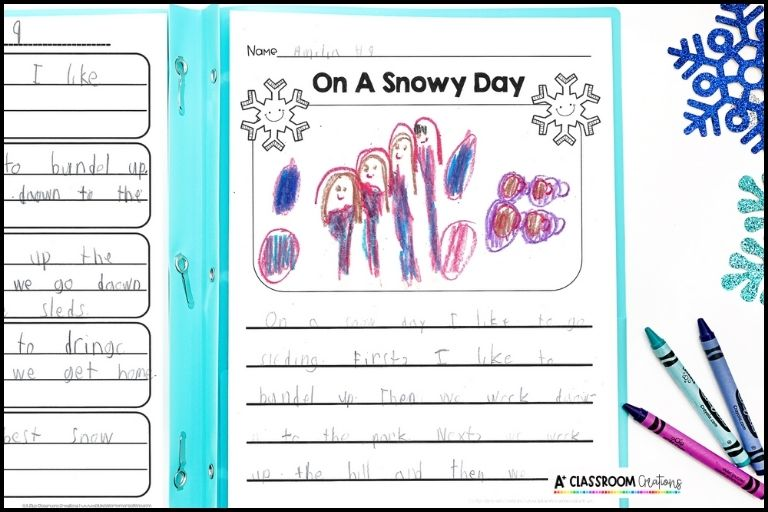 9
I like
to bundel up.
down to the
up the
we go daown
sleds.
to dringc
we get home.
best snow
Name Amilia #9
On A Snowy Day
On a snow day I like to go
sleding. First, I like to
bundel up. Then we wock down
to the park. Next, we wock
up the hill and then we
A+ CLASSROOM Creations